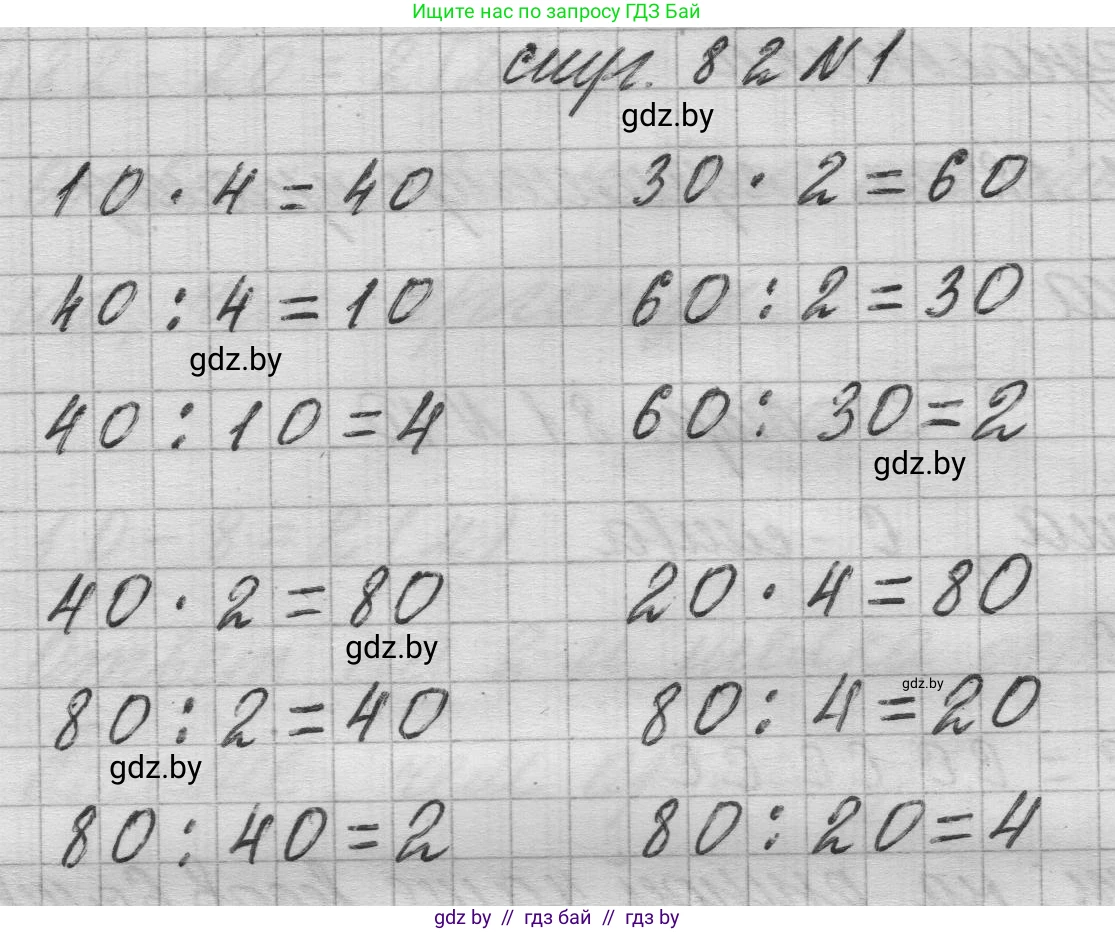 Ищите нас по запросу ГДЗ Бай
стр. 82 N 1
gdz.by
10 · 4 = 40 30 · 2 = 60
40 : 4 = 10 60 : 2 = 30
gdz.by
40 : 10 = 4 60 : 30 = 2
gdz.by
40 · 2 = 80 20 · 4 = 80
gdz.by
80 : 2 = 40 80 : 4 = 20
gdz.by
gdz.by
80 : 40 = 2 80 : 20 = 4
gdz.by // гдз бай // гдз by